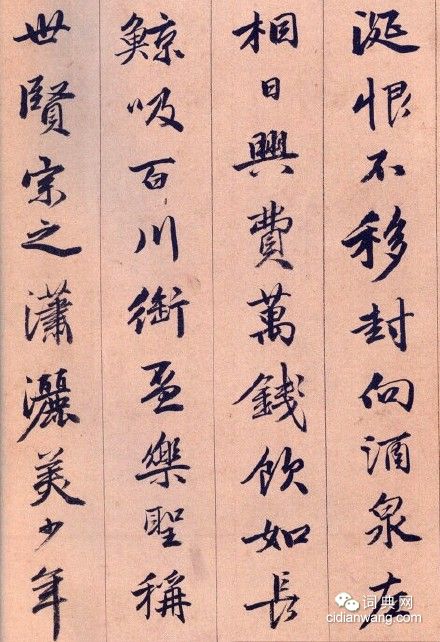 涎恨不移封向酒泉左
相日興費萬錢飲如長
鯨吸百川銜盃樂聖稱
世賢宗之瀟灑美少年
词典网
cidianwang.com